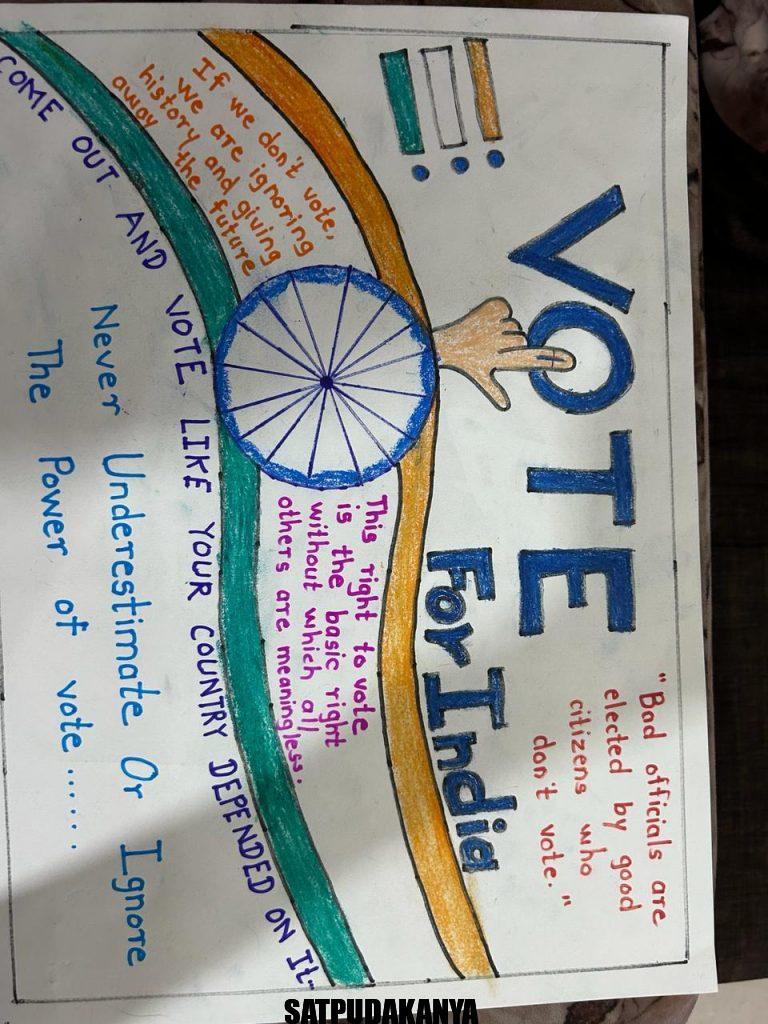 VOTE
For India
"Bad officials are
elected by good
citizens who
don't vote."
If we don't vote,
we are ignoring
history and giving
away the future
This right to vote
is the basic right
without which all
others are meaningless.
COME OUT AND VOTE LIKE YOUR COUNTRY DEPENDED ON It-
Never Underestimate Or Ignore
The Power of vote.......
SATPUDAKANYA